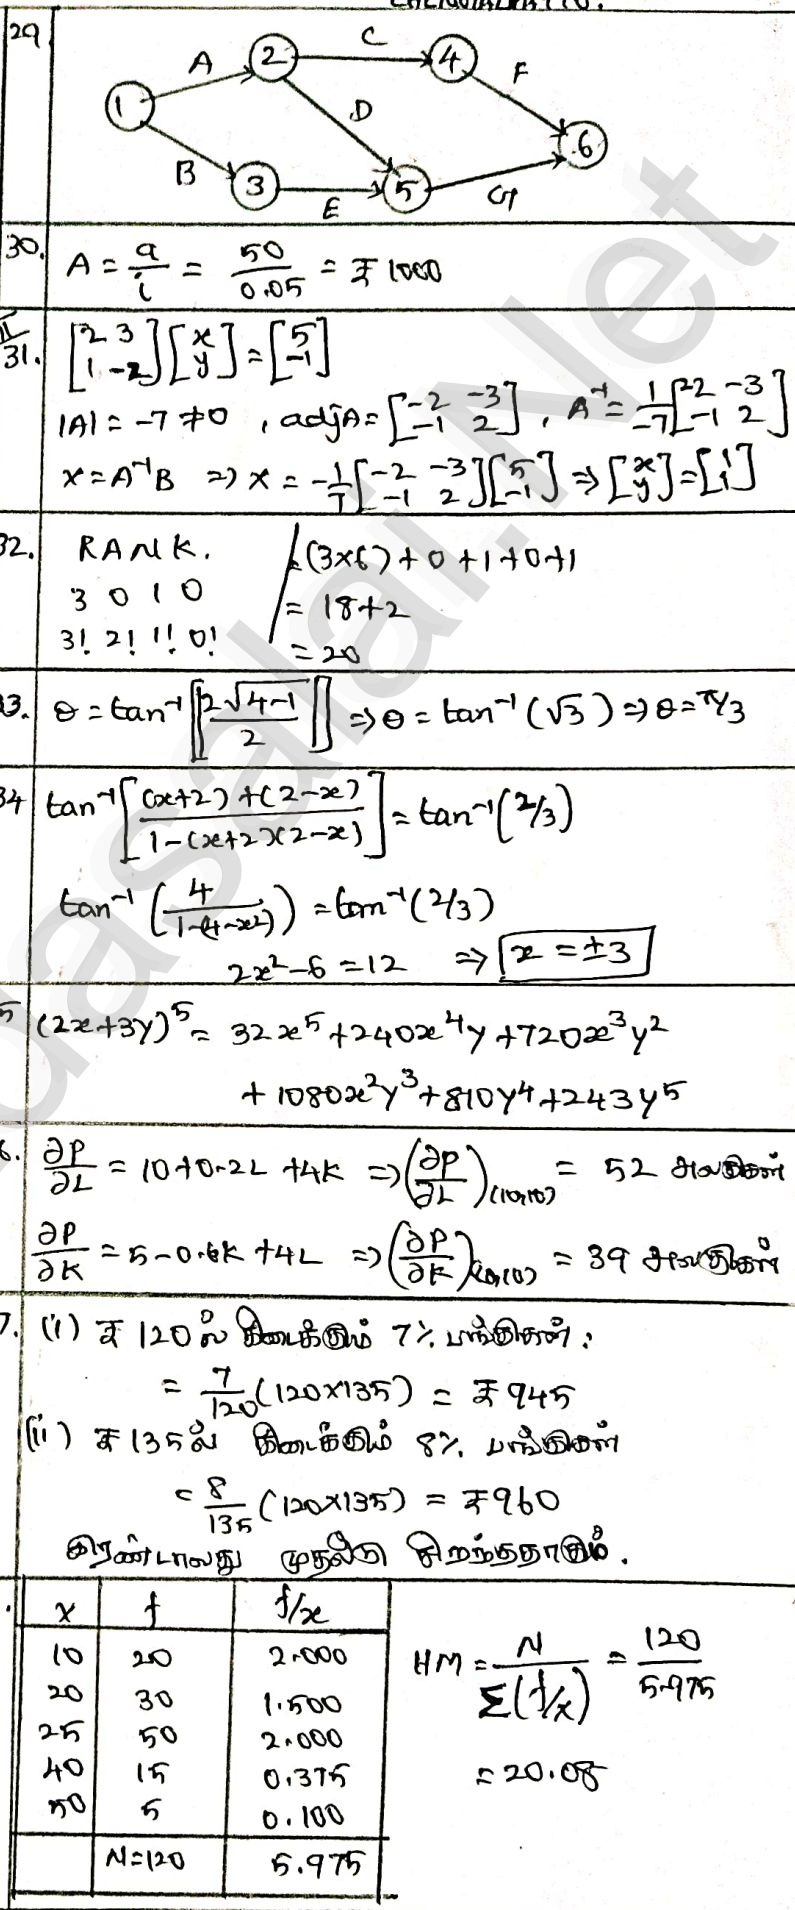 29
A
2
C
4
F
1
D
6
B
3
E
5
G
30. A = a/i = 50/0.05 = ₹ 1000
II
31. [2 3
1 -2] [x
y] = [5
-1]
|A| = -7 ≠ 0 , adjA = [-2 -3
-1 2] , A⁻¹ = 1/-7 [-2 -3
-1 2]
X = A⁻¹B ⇒ X = -1/7 [-2 -3
-1 2] [5
-1] ⇒ [x
y] = [1
1]
32. RANK.
3 0 1 0
3! 2! 1! 0!
= (3×6) + 0 + 1 + 0 + 1
= 18+2
= 20
33. θ = tan⁻¹ [|2√4-1/2|] ⇒ θ = tan⁻¹ (√3) ⇒ θ = π/3
34 tan⁻¹ [(x+2) + (2-x)/1-(x+2)(2-x)] = tan⁻¹ (2/3)
tan⁻¹ (4/1-(4-x²)) = tan⁻¹ (2/3)
2x²-6 = 12 ⇒ x = ±3
5 (2x+3y)⁵ = 32x⁵ + 240x⁴y + 720x³y²
+ 1080x²y³ + 810y⁴ + 243y⁵
6. ∂P/∂L = 10+0.2L + 4K ⇒ (∂P/∂L)(10,10) = 52 அலகுகள்
∂P/∂K = 5-0.6K + 4L ⇒ (∂P/∂K)(10,10) = 39 அலகுகள்
7. (i) ₹ 120 ல் கிடைக்கும் 7% பங்குகள் :
= 7/120 (120×135) = ₹ 945
(ii) ₹ 135 ல் கிடைக்கும் 8% பங்குகள்
= 8/135 (120×135) = ₹ 960
இரண்டாவது முதலீடு சிறந்ததாகும்.
x f f/x
10 20 2.000
20 30 1.500
25 50 2.000
40 15 0.375
50 5 0.100
N=120 5.975
HM = N/Σ(f/x) = 120/5.975
= 20.08